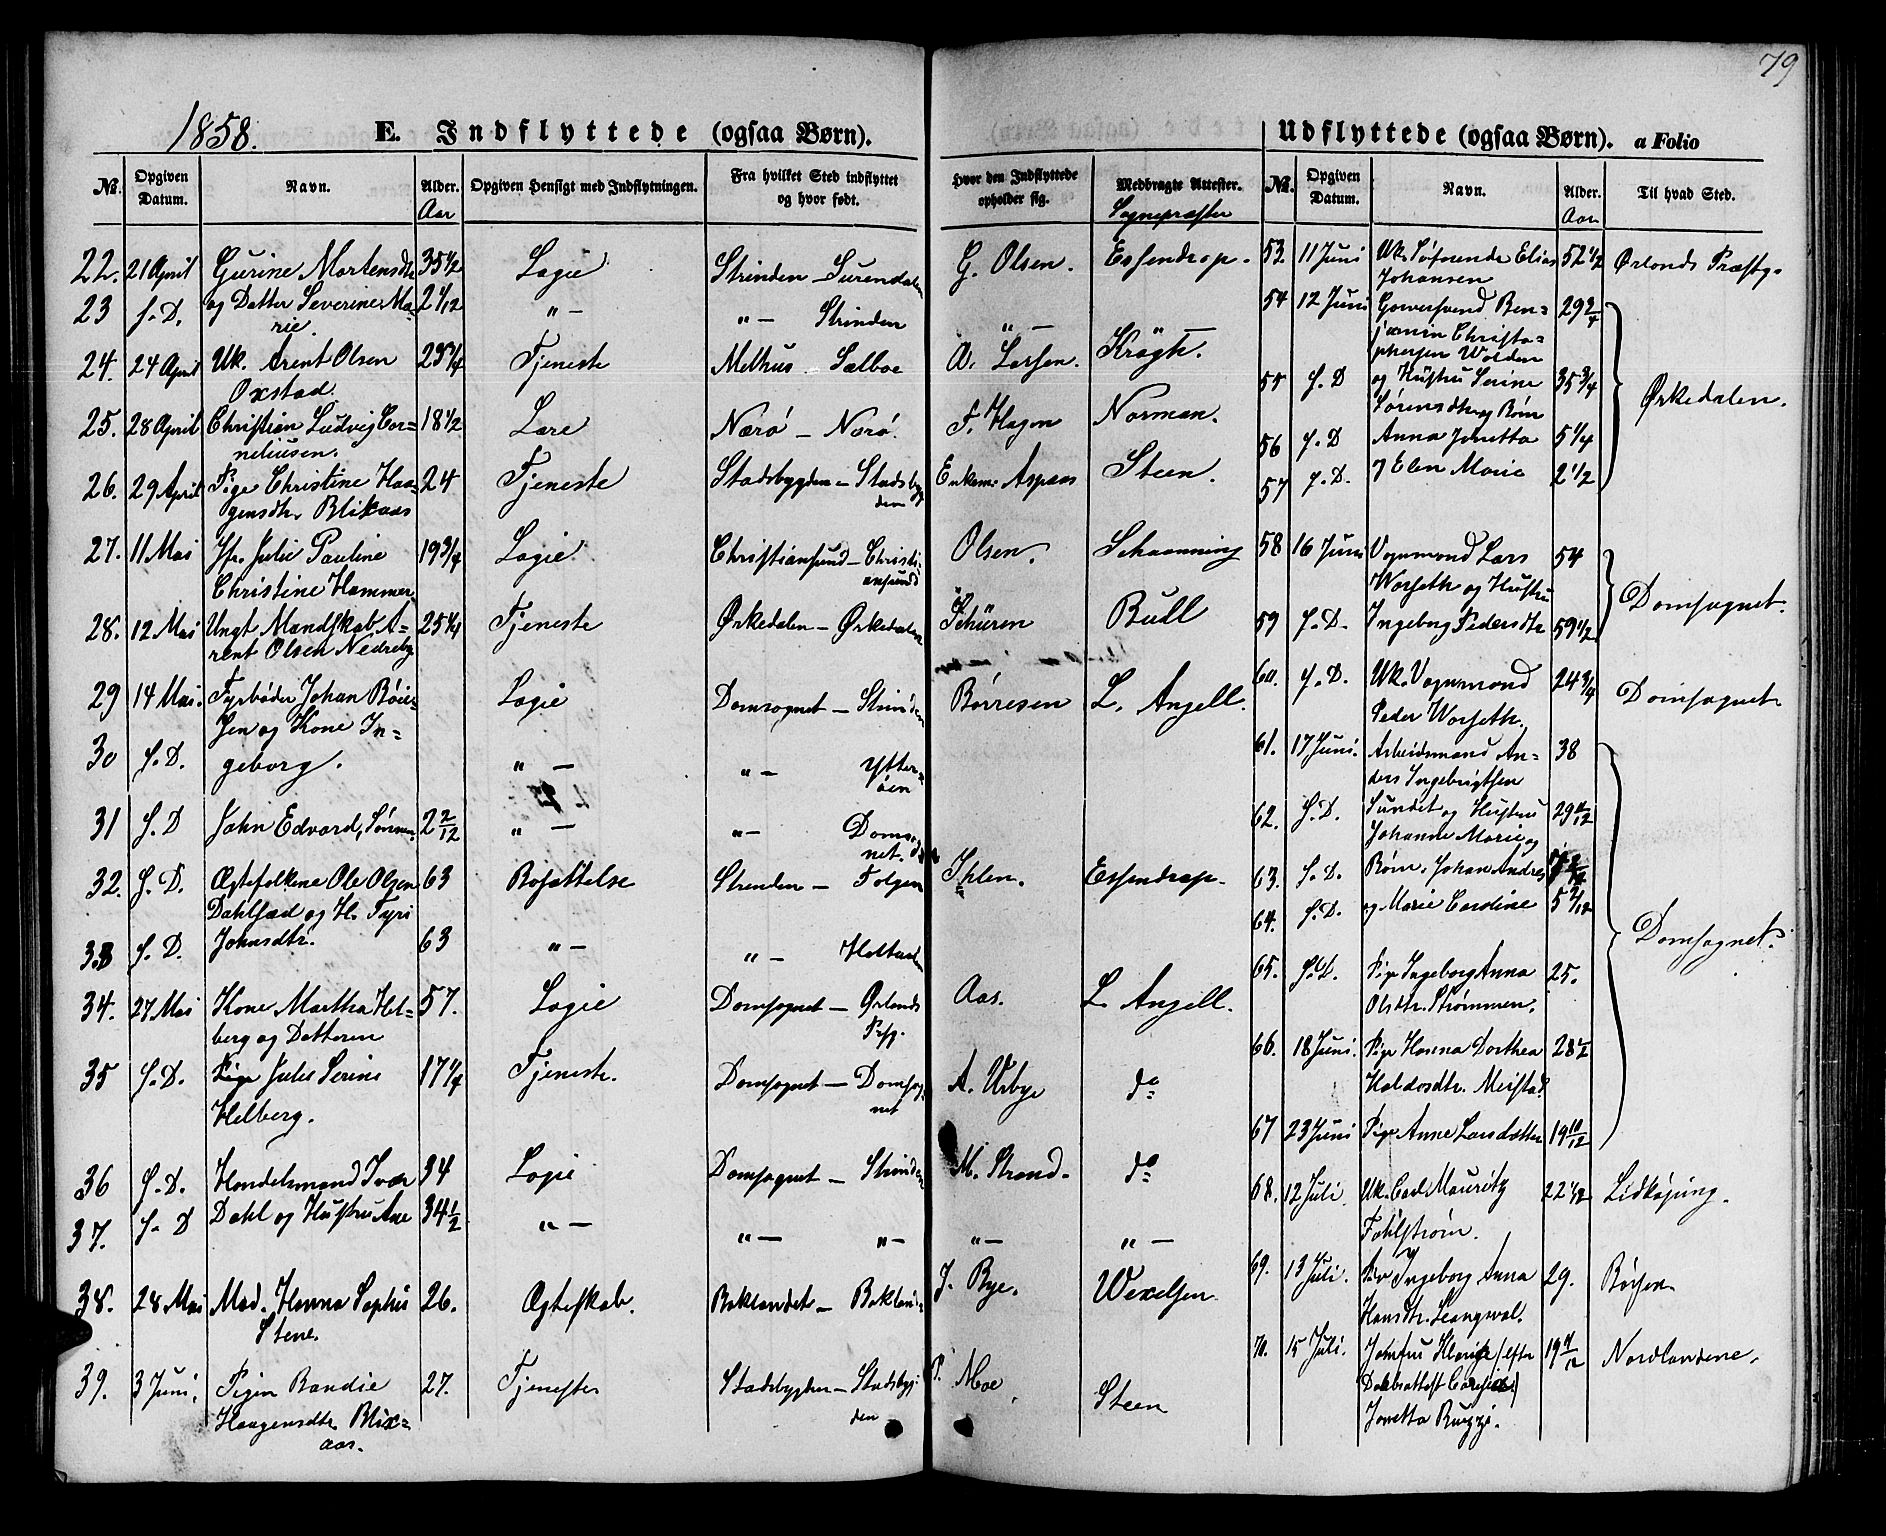 79
1858.
E. Indflyttede (ogsaa Børn).
Udflyttede (ogsaa Børn). a Folio
No. Opgiven Datum. Navn. Alder. Aar Opgiven Hensigt med Indflytningen. Fra hvilket Sted indflyttet og hvor født. Hvor den Indflyttede opholder sig. Medbragte Attester. Sognepræster
22. 21 April Gurine Mortensdtr 35 1/2 Logie Strinden – Surendalen G. Olsen. Essendrop.
23 s. D. og Datter Severine Ma-
rie. 2 1/12 " – " – Strinden " –
24. 24 April Uk. Arent Olsen
Oxstad. 23 3/4 Tjeneste Melhus Sælboe A. Larsen. Krogh.
25. 28 April Christian Ludvig Cor-
neliusen. 18 1/2 Lære Nærø – Nærø. F. Hagen Norman.
26. 29 April Pige Christine Haa-
gensdtr. Blixaas 24 Tjeneste Stadsbygden – Stadsbyg
den Enkem. Aspaas Steen.
27. 11 Mai Jfr. Julie Pauline
Christine Hammer 19 3/4 Logie Christiansund – Christi-
ansund Olsen. Schaanning
28. 12 Mai Ungt Mandskab A-
rent Olsen Nedreby 25 1/4 Tjeneste Ørkedalen – Ørkedalen Schüren Bull
29 14 Mai. Fyrbøder Johan Børre-
sen og Kone In- Logie Domsognet – Strinden Børresen L. Angell.
30 s. D. geborg. " – " – Ytter-
øen
31 s. D John Edvard, Sønnen. 2 2/12 " – " – Domsog
net.
32. s. D. Ægtefolkene Ole Olsen 63 Bosættelse Strinden – Fosen Ihlen. Essendrop.
Dahlsæd og H. Fyri
33 s. D. Johnsdtr. 63 " – " – Holtaalen
34. 27 Mai Kone Martha Hel-
berg og Datteren 57. Logie Domsognet – Ørlands
Pstg. Aas. L. Angell.
35 s. D. Pige Julie Serine
Helberg. 17 1/4 Tjeneste. Domsognet – Domsog-
net A. Usbye do
36 s. D. Handelsmand Ivar 34 Logie Domsognet – Strinden M. Strand. do
37. s. D Dahl og Hustru Ane 34 1/2 " – " – " – " – " –
38. 28 Mai Mad. Hanna Sophie
Stene. 26. Ægteskab. Baklandet – Baklan- J. Bye. Wexelsen
39. 3 Juni. Pigen Randie
Haagensdtr Blix-
aas. 27. Tjeneste Stadsbygden – Stadsbyg-
den P. Moe Steen
No. Opgiven Datum. Navn. Alder. Aar Til hvad Sted.
53. 11 Juni Uk. Søfarende Elias
Johansen 52 1/2 Ørlands Præstg.
54 12 Juni Garversvend Ben-
jamin Christo-
phersen Wolden 29 3/4
55 s. D og Hustru Serine
Sørensdtr og Børn 35 3/4 Ørkedalen.
56 s. D Anna Jonetta 5 1/4
57 s. D. & Elen Marie 2 1/2
58 16 Juni Vognmand Lars
Worseth og Hustru 54 Domsognet.
59 s. D. Ingeborg Pedersdtr 59 1/2
60. s. D. Uk. Vognmand
Peder Worseth. 24 3/4 Domsognet
61. 17 Juni. Arbeidsmand An-
ders Ingebrigtsen 38
62. s. D. Sundet og Hustru
Johanne Marie og 29 11/12
63. s. D. Børn. Johan Andreas
64. s. D. og Marie Cardine 5 2/12 Domsognet.
65. s. D. Pige Ingeborg Anna
Olsdtr. Strømmen. 25.
66. 18 Juni. Pige Hanna Dorthea
Haldosdtr. Meistad 28 1/2
67 23 Juni Pige Anne Larsdatter 19 10/12
68. 12 Juli. Uk. Carl Mauritz
Fahlstrøm. 22 1/2 Lidkøping.
69. 13 Juli. Pige Ingeborg Anna
Hansdtr. Leangwal. 29. Børsen
70. 15 Juli. Jomfru (efter
Daabsattest)
Jonetta 19 Nordlandene.